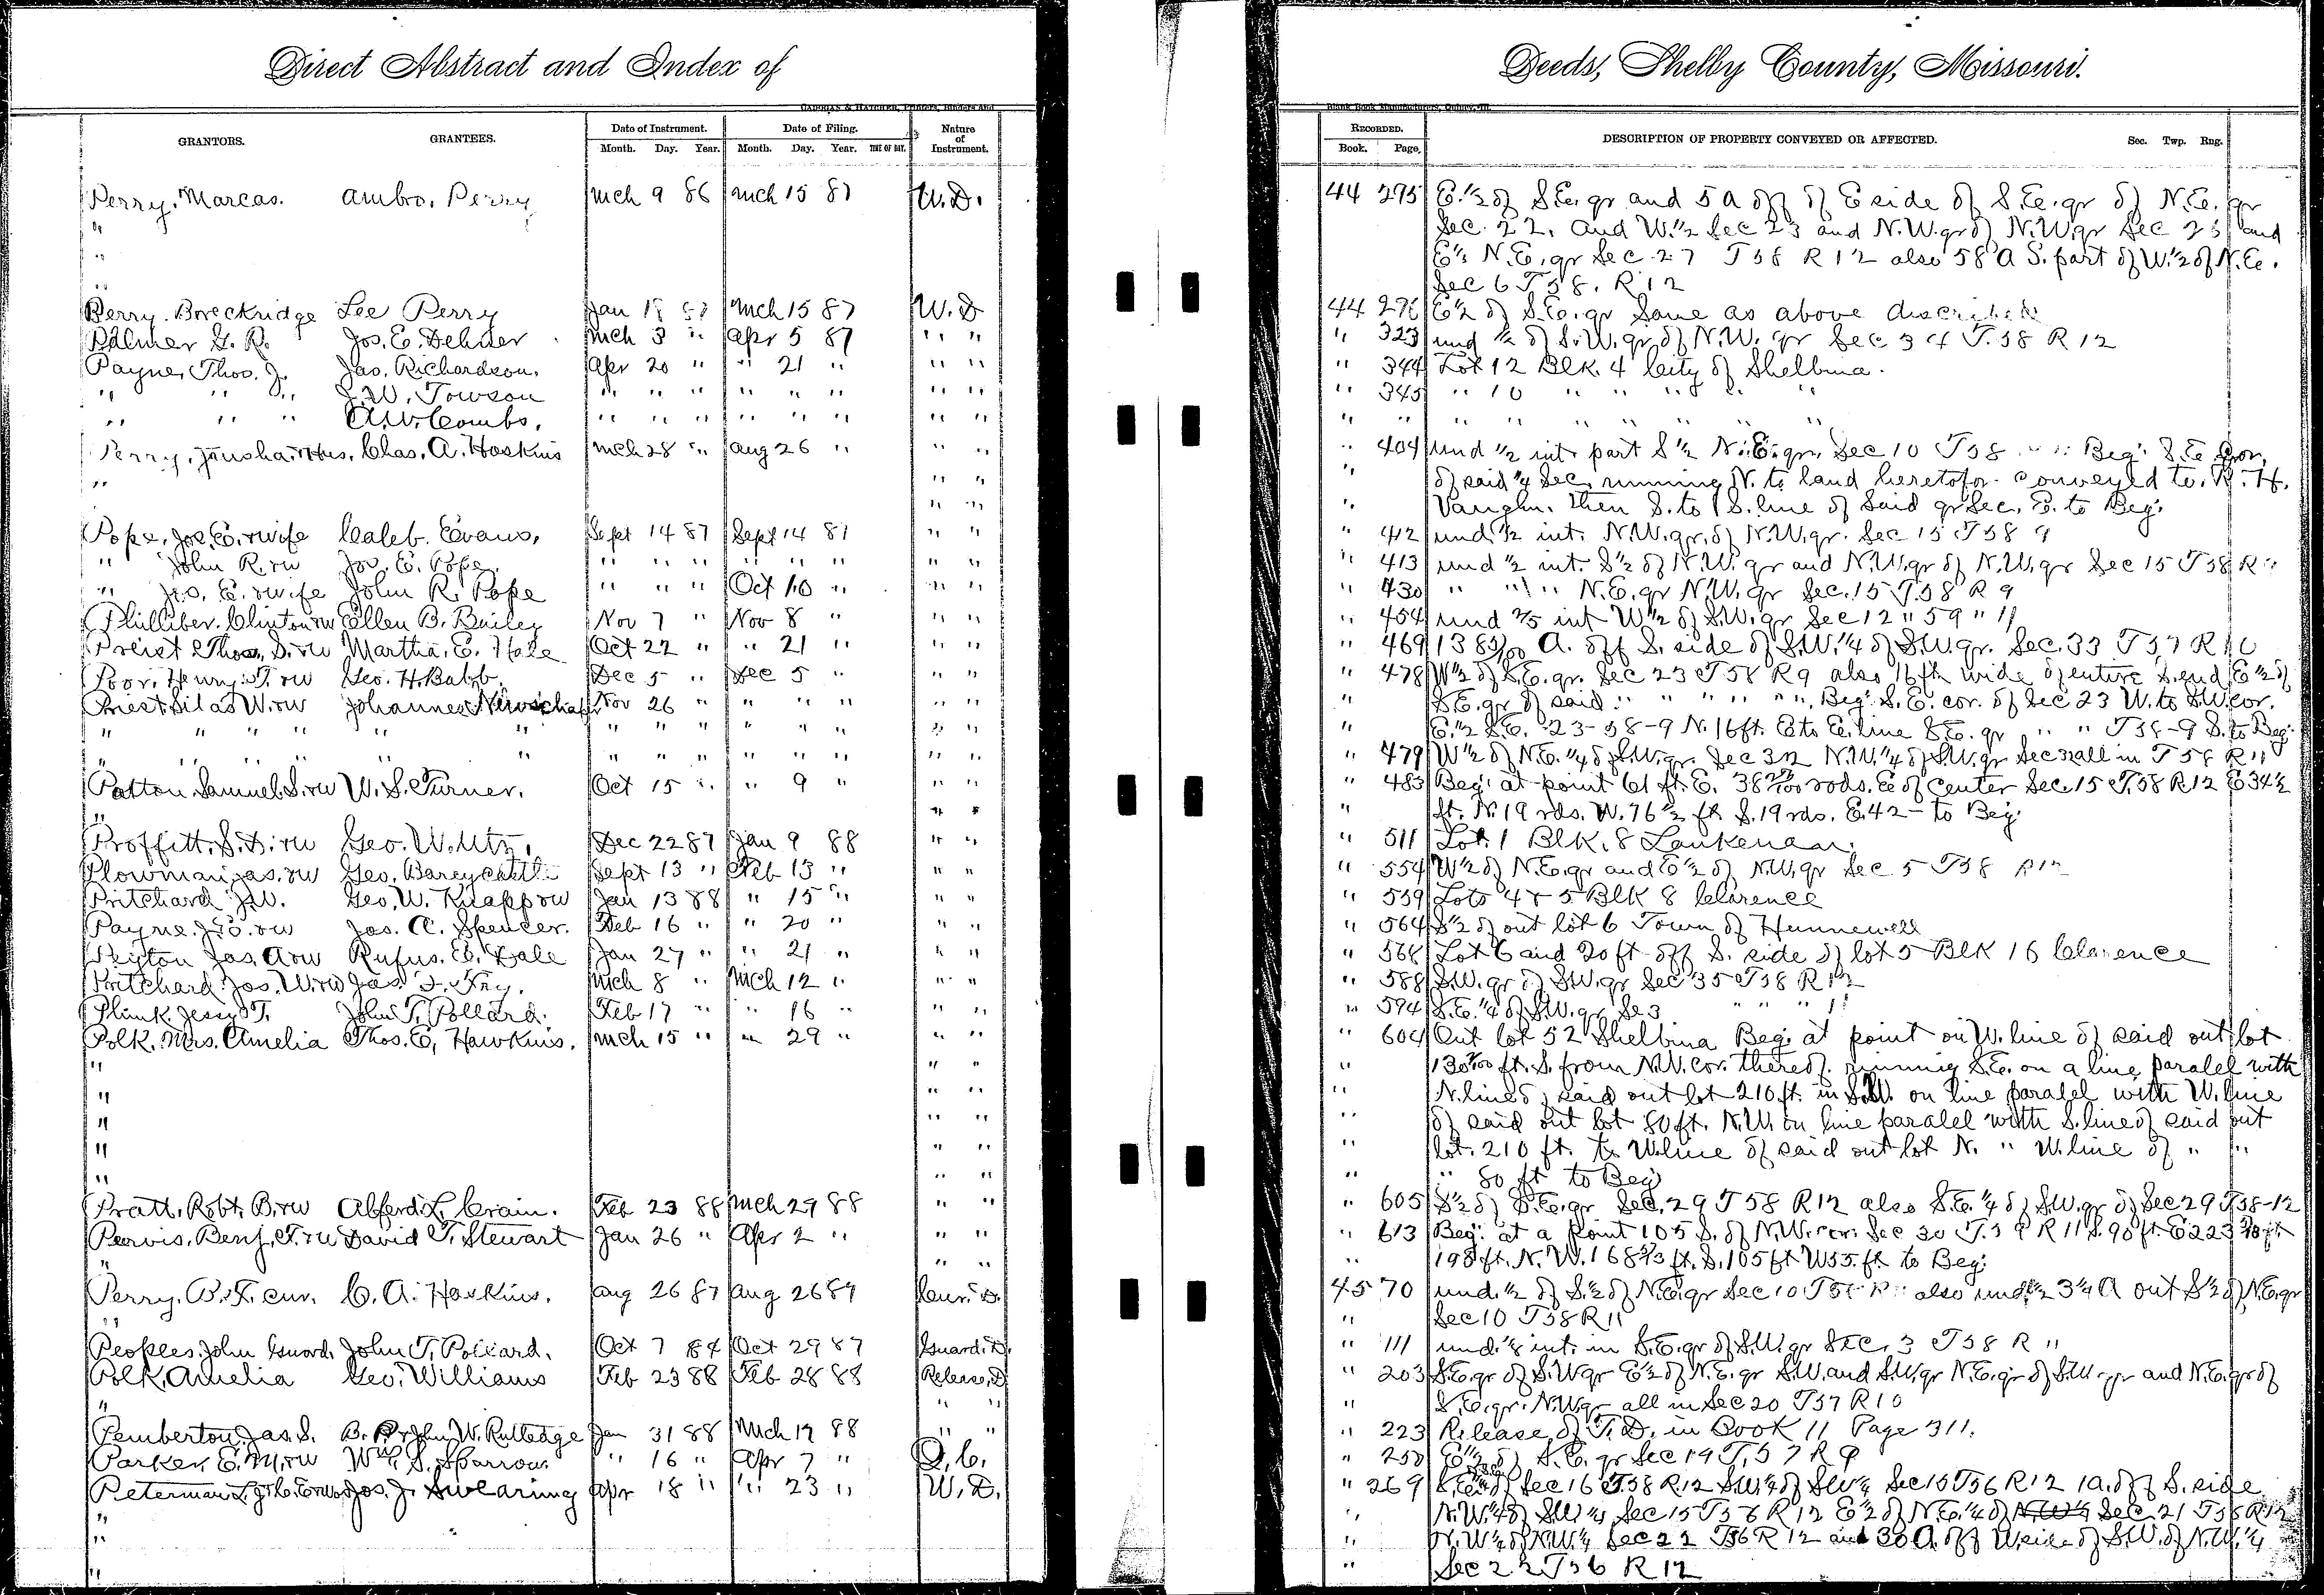 Direct Abstract and Index of
Deeds, Shelby County, Missouri.
GRANTORS. GRANTEES. Date of Instrument. Month. Day. Year. Date of Filing. Month. Day. Year. TIME OF DAY. Nature of Instrument.
RECORDED. Book. Page. DESCRIPTION OF PROPERTY CONVEYED OR AFFECTED. Sec. Twp. Rng.
Perry, Marcas. Ambro. Perry Mch 9 86 Mch 15 87 W.D. 44 295 E.½ of S.E. qr and 5 A off of E side of S.E. qr of N.E. qr
" Sec. 22. and W.½ Sec 23 and N.W. qr of N.W. qr Sec 23 and
" E½ N.E. qr Sec 27 T58 R12 also 58 A S. part of W.½ of N.E.
" Sec 6 T58. R12
Perry. Breckridge Lee Perry Jan 18 87 Mch 15 87 W.D 44 296 E½ of S.E. qr Same as above described
Palmer G. R. Jos. E. Dehner Mch 3 " Apr 5 87 " " " 323 und ½ of S.W. qr of N.W. qr Sec 34 T.58 R12
Payne, Thos. J. Jas. Richardson. Apr 20 " " 21 " " " " 344 Lot 12 Blk. 4 City of Shelbina.
" " " J.W. Towson " " " " " " " " " 345 " 10 " " " " "
" " " A.W. Combs. " " " " " " " " " " " " " " " "
Perry, Chas. A. Hoskins Mch 28 " Aug 26 " " " " 404 und ½ int. part S½ N.E. qr. Sec 10 T58 Beg. S.E. cor.
" " " " of said ¼ Sec. running N. to land heretofor conveyed to R. H.
" " " Vaughn. then S. to S. line of said qr Sec. E. to Beg.
Pope, Jos. E. & wife Caleb. Evans, Sept 14 87 Sept 14 87 " " " 412 und. ½ int. N.W. qr. of N.W. qr. Sec 15 T58 9
" John R. & w Jos. E. Pope. " " " " " " " " " 413 und ½ int. S½ of N.W. qr and N.W. qr of N.W. qr Sec 15 T58 R "
" Jos. E. & wife John R. Pope " " " Oct 10 " " " " 430 " " " N.E. qr N.W. qr Sec. 15 T58 R 9
Philliber. Clinton & w Ellen B. Bailey Nov 7 " Nov 8 " " " " 454 und ⅖ int W½ of S.W. qr Sec 12 " 59 " 11
Preist Thos. S. & w Martha. E. Hale Oct 22 " " 21 " " " " 469 13 83/100 A. off S. side of S.W. ¼ of S.W. qr. Sec. 33 T57 R10
Poor, Henry T. & w Geo. H. Babb. Dec 5 " Dec 5 " " " " 478 W½ of S.E. qr. Sec 23 T58 R9 also 16 ft. wide of entire S. end E½ of
Priest Silas W. & w Johannes Nov 26 " " " " " " " S.E. qr of said " " " " ", Beg. S.E. cor. of Sec 23 W. to S.W. cor.
" " " " " " " " " " " " " " E.½ S.E. 23-58-9 N. 16 ft. E to E. line S.E. qr " " T58-9 S. to Beg.
" " " " " " " " " " " " " " 479 W½ of N.E. ¼ of S.W. qr. Sec 32 N.W. ¼ of S.W. qr Sec 32 all in T58 R11
Patton Samuel S. & w W. S. Turner. Oct 15 " " 9 " " " " 483 Beg. at point 61 ft. E. 38 rods. E of center Sec. 15 T.58 R12 E 34½
" " " " ft. N. 19 rds. W. 76½ ft S. 19 rds. E. 42- to Beg.
Proffitt. S. D. & w Geo. W. Utz. Dec 22 87 Jan 9 88 " " " 511 Lot. 1 Blk. 8 Lenkenan.
Plowman Jas. & w Geo. Sept 13 " Feb 13 " " " " 554 W½ of N.E. qr and E½ of N.W. qr Sec 5 T58 R12
Pritchard J.W. Geo. W. Knapp & w Jan 13 88 " 15 " " " " 559 Lots 4 & 5 Blk 8 Clarence
Payne. & w Jas. A. Spencer. Feb 16 " " 20 " " " " 564 S½ of out lot 6 Town of Hunnewell
Peyton Jas. A & w Rufus. E. Dale Jan 27 " " 21 " " " " 568 Lot 6 and 20 ft off S. side of lot 5 Blk 16 Clarence
Pritchard Jos. W. & w Jas. F. Fry. Mch 8 " Mch 12 " " " " 588 S.W. qr of S.W. qr Sec 35 T58 R12
Plink. Jessy T. John T. Pollard. Feb 17 " " 16 " " " " 594 S.E. ¼ of S.W. qr Se 3 " " " 11
Polk. Mrs. Amelia Thos. E. Hawkins. Mch 15 " " 29 " " " " 604 Out lot 52 Shelbina Beg. at point on W. line of said out lot
" " " " ft. S. from N.W. cor. thereof. running S.E. on a line paralel with
" " " " N. line of said out lot 210 ft. in S.W. on line paralel with W. line
" " " " of said out lot 80 ft. N.W. on line paralel with S. line of said out
" " " " lot. 210 ft. to W. line of said out lot N. " W. line of " "
" " " " " 80 ft to Beg
Pratt. Robt. B. & w Alferd L. Crain. Feb 23 88 Mch 29 88 " " " 605 S½ of S.E. qr Sec. 29 T58 R12 also S.E. ¼ of S.W. qr of Sec 29 T58-12
Pervis. Benj. F. & w David T. Stewart Jan 26 " Apr 2 " " " " 613 Beg. at a point 105 S. of N.W. cor. Sec 30 T.59 R11 S. 90 ft. E 223 ft
" " " " 198 ft. N. W. 168⅔ ft. S. 105 ft W 55. ft. to Beg.
Perry. B. F. cur. C. A. Hoskins. Aug 26 87 Aug 26 87 Cur. D. 45 70 und. ½ of S.½ of N.E. qr Sec 10 T58 R " also und. ½ 3¼ A out S½ of N.E. qr
" " Sec 10 T58 R11
Peoples John Guard. John T. Pollard. Oct 7 84 Oct 29 87 Guard. D. " 111 und. ⅛ int. in S.E. qr of S.W. qr Sec. 3 T58 R 11
Polk, Amelia Geo. Williams Feb 23 88 Feb 28 88 Release. D " 203 S.E. qr of S.W. qr E½ of N.E. qr S.W. and S.W. qr N.E. qr of S.W. qr and N.E. qr of
" " " " S.E. qr. N.W. qr all in Sec 20 T57 R10
Pemberton, Jas. S. B. P. & John W. Rutledge Jan 31 88 Mch 19 88 " " " 223 Release of T.D. in Book 11 Page 311.
Parker, E. M. & w Wm. S. Sparrow. " 16 " Apr 7 " Q.C. " 250 E½ of S.E. qr Sec 19 T.57 R 9
Peterman Jos. J. Swearing Apr 18 " " 23 " W.D. " 269 of Sec 16 T.58 R.12 S.W. ¼ of S.W. ¼ Sec 15 T56 R12 1 A. off S. side
" " N.W. ¼ of S.W. ¼ Sec 15 T56 R12 E½ of N.E. ¼ of N.W.¼ Sec. 21 T56 R12
" " N.W. ¼ of N.W. ¼ Sec 22 T56 R12 and 30 A. off W. side of S.W. of N.W. ¼
" " Sec 22 T56 R12